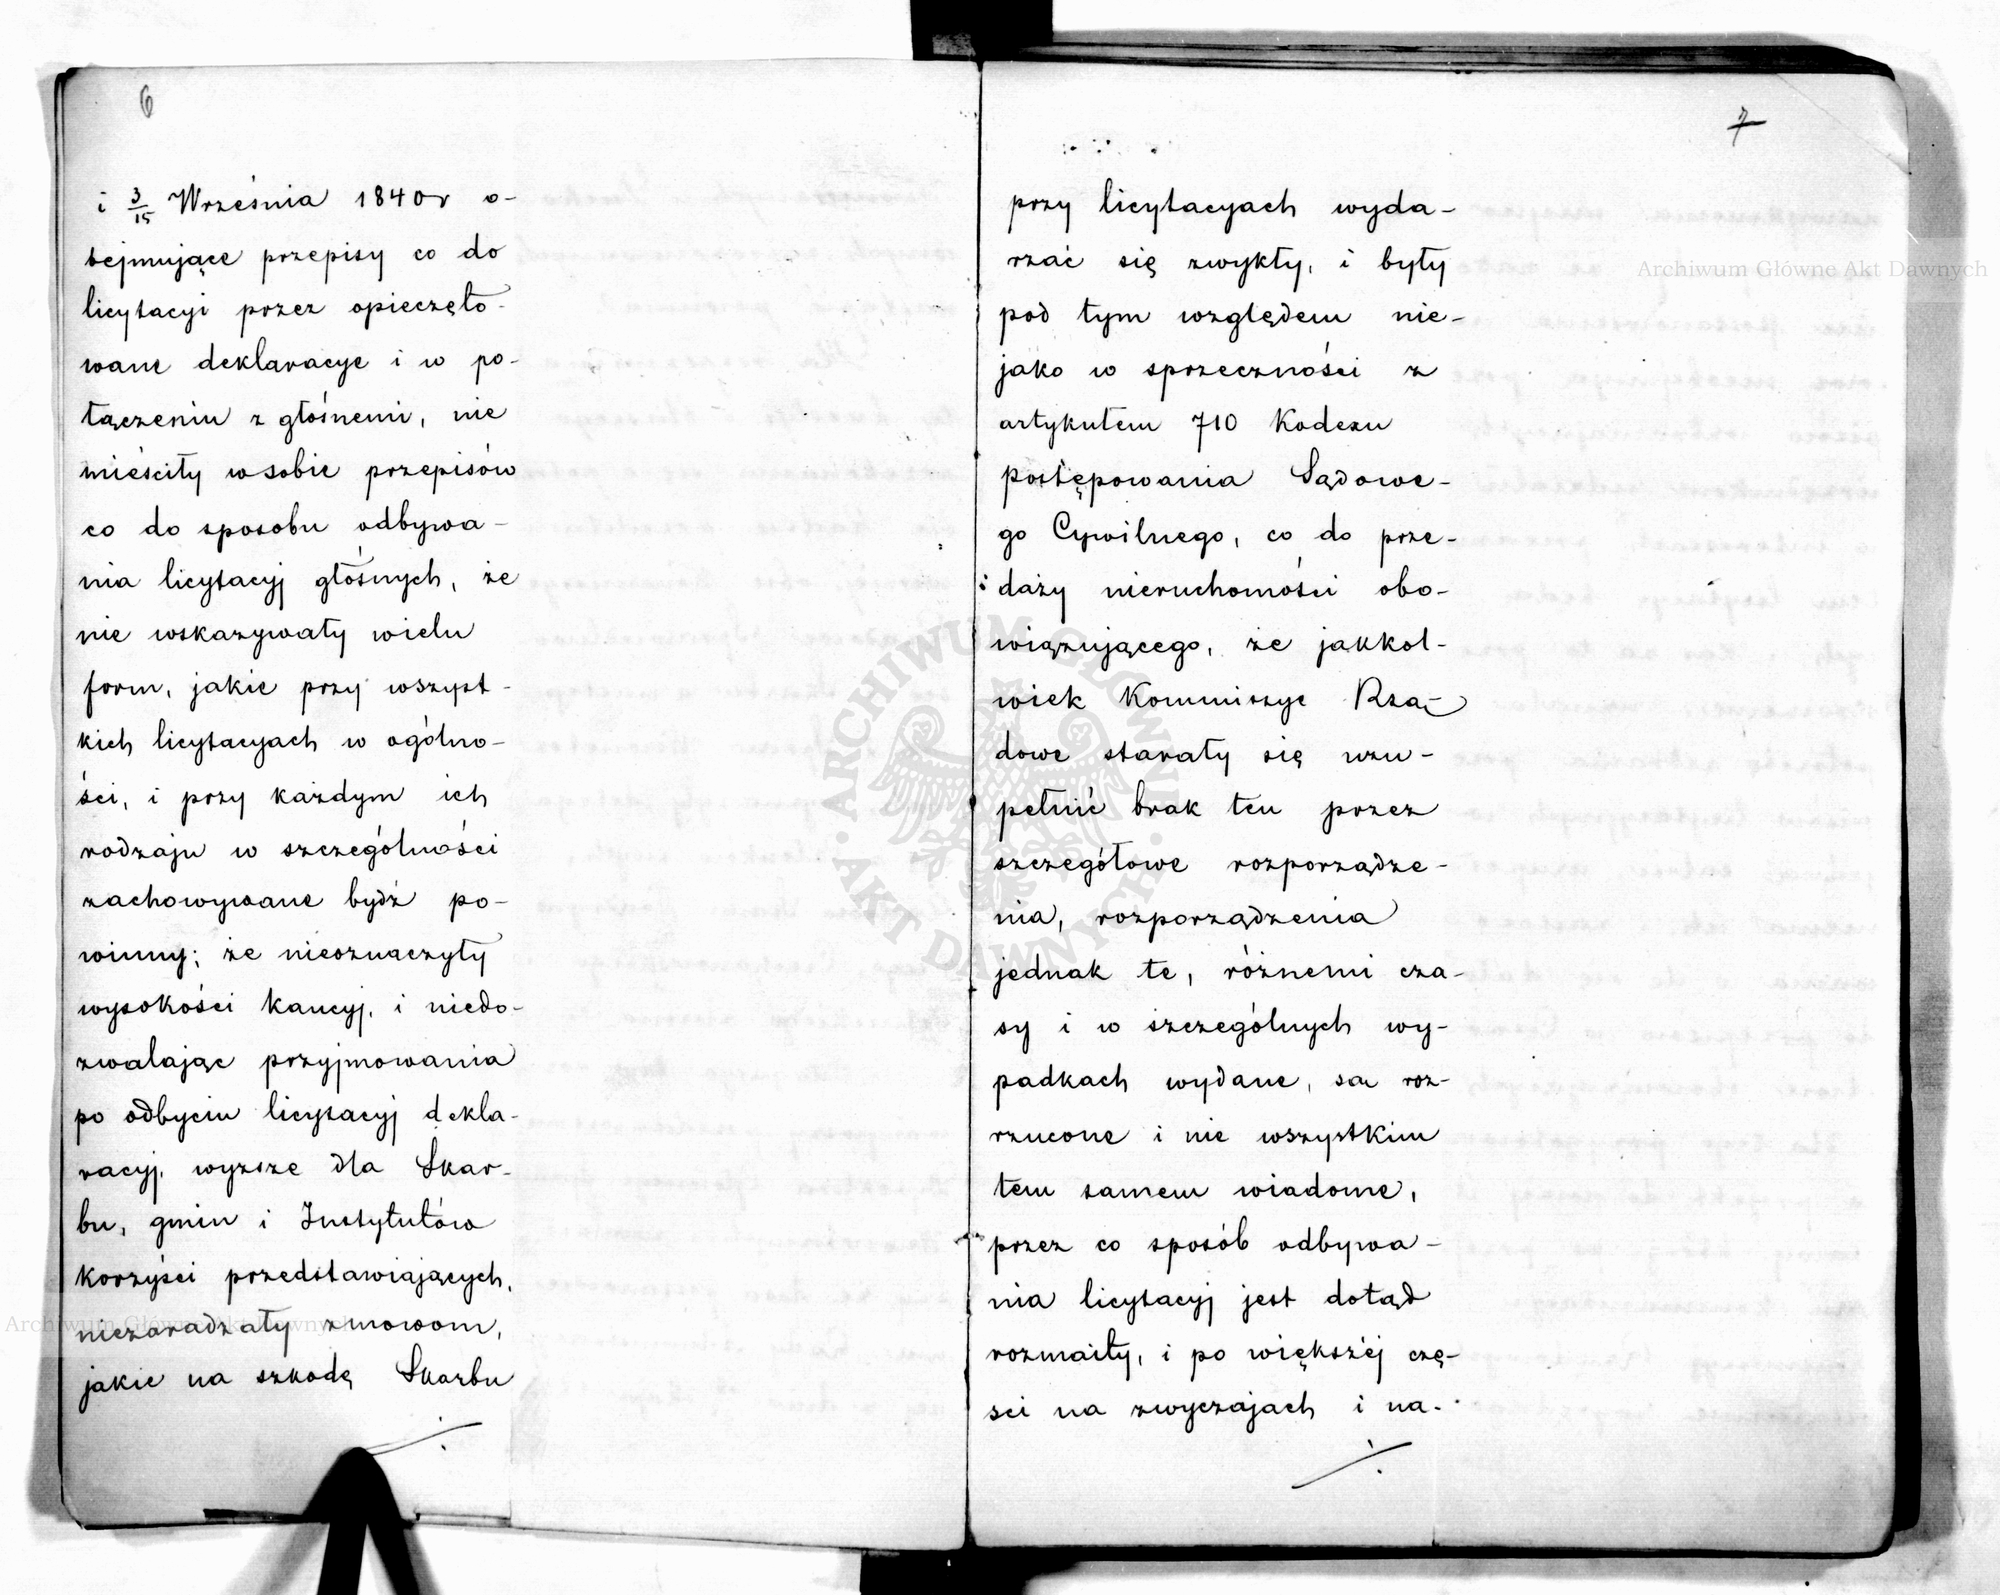 6
i 3/15 Września 1840r o-
bejmujące przepisy co do
licytacyi przez opieczęto-
wane deklaracye i w po-
łączeniu z głośnemi, nie
mieściły w sobie przepisów
co do sposobu odbywa-
nia licytacyj głośnych, że
nie wskazywały wielu
form, jakie przy wszyst-
kich licytacyach w ogólno-
ści, i przy każdym ich
rodzaju w szczególności
zachowywane bydź po-
winny; że nieoznaczyły
wysokości kaucyj, i niedo-
zwalając przyjmowania
po odbyciu licytacyj dekla-
racyj, wyższe dla Skar-
bu, gmin i Instytutów
korzyści przedstawiających,
niezaradzały zmowom,
jakie na szkodę Skarbu
7
przy licytacyach wyda-
rzać się zwykły, i były
pod tym względem nie-
jako w sprzeczności z
artykułem 710 Kodexu
postępowania Sądowe-
go Cywilnego, co do prze-
daży nieruchomości obo-
wiązującego, że jakkol-
wiek Kommissye Rzą-
dowe starały się uzu-
pełnić brak ten przez
szczegółowe rozporządze-
nia, rozporządzenia
jednak te, różnemi cza-
sy i w szczególnych wy-
padkach wydane, są roz-
rzucone i nie wszystkim
tem samem wiadome,
przez co sposób odbywa-
nia licytacyj jest dotąd
rozmaity, i po większéj czę-
ści na zwyczajach i na-
ARCHIWUM GŁÓWNE AKT DAWNYCH
Archiwum Główne Akt Dawnych
Archiwum Główne Akt Dawnych